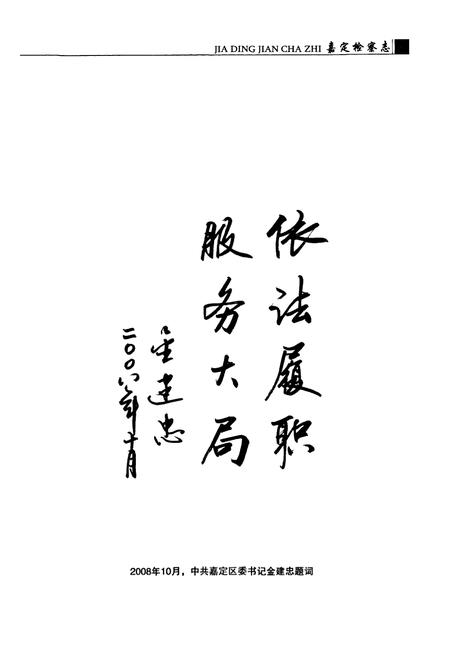 JIA DING JIAN CHA ZHI 嘉定检察志
依法履职
服务大局
金建忠
二〇〇八年十月
2008年10月，中共嘉定区委书记金建忠题词